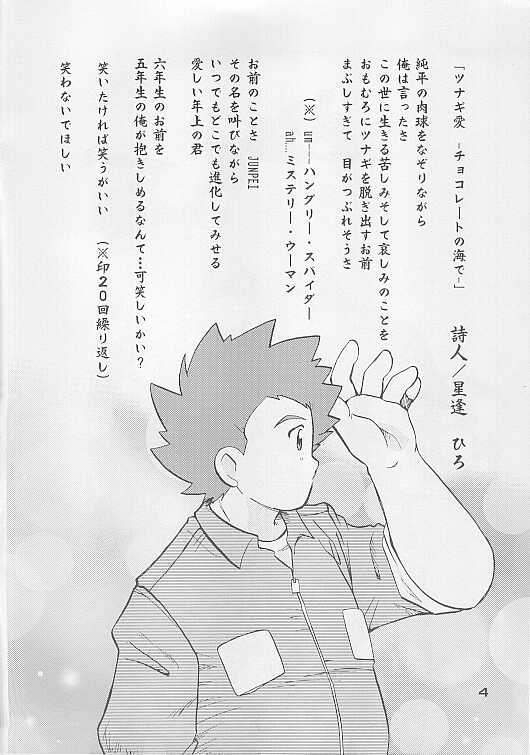 「ツナギ愛 -チョコレートの海で-」
詩人／星逢 ひろ
純平の肉球をなぞりながら
俺は言ったさ
この世に生きる苦しみそして哀しみのことを
おもむろにツナギを脱ぎ出すお前
まぶしすぎて 目がつぶれそうさ
（※） un――ハングリー・スパイダー
ah...ミステリー・ウーマン
お前のことさ JUNPEI
その名を叫びながら
いつでもどこでも進化してみせる
愛しい年上の君
六年生のお前を
五年生の俺が抱きしめるなんて…可笑しいかい？
笑いたければ笑うがいい （※印２０回繰り返し）
笑わないでほしい
4